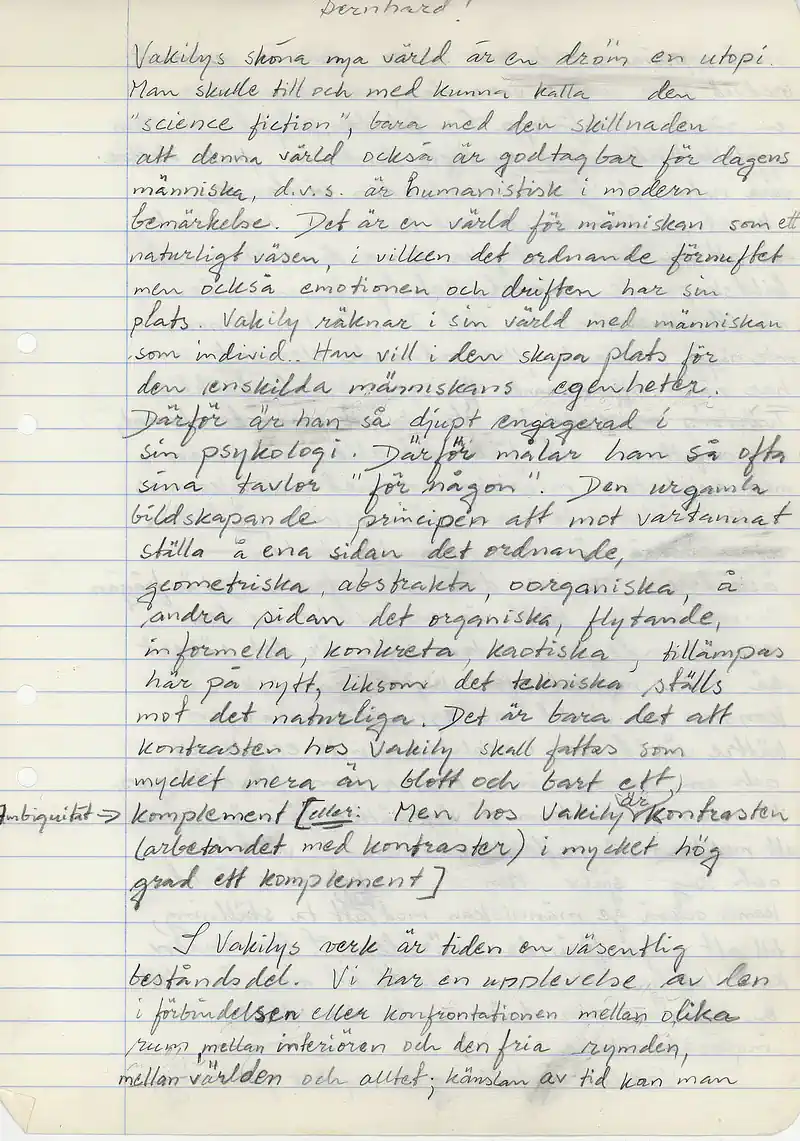 Bernhard!
Vakilys sköna nya värld är en dröm en utopi.
Man skulle till och med kunna kalla den
"science fiction", bara med den skillnaden
att denna värld också är godtagbar för dagens
människa, d.v.s. är humanistisk i modern
bemärkelse. Det är en värld för människan som ett
naturligt väsen, i vilken det ordnande förnuftet
men också emotionen och driften har sin
plats. Vakily räknar i sin värld med människan
som individ. Han vill i den skapa plats för
den enskilda människans egenheter.
Därför är han så djupt engagerad i
sin psykologi. Därför målar han så ofta
sina tavlor "för någon". Den urgamla
bildskapande principen att mot vartannat
ställa å ena sidan det ordnande,
geometriska, abstrakta, oorganiska, å
andra sidan det organiska, flytande,
informella, konkreta, kaotiska, tillämpas
här på nytt, liksom det tekniska ställs
mot det naturliga. Det är bara det att
kontrasten hos Vakily skall fattas som
mycket mera än blott och bart ett
Ambiguität → komplement [eller: Men hos Vakily är kontrasten
(arbetandet med kontraster) i mycket hög
grad ett komplement]
I Vakilys verk är tiden en väsentlig
beståndsdel. Vi har en upplevelse av den
i förbindelsen eller konfrontationen mellan olika
rum, mellan interiören och den fria rymden,
mellan världen och alltet; känslan av tid kan man